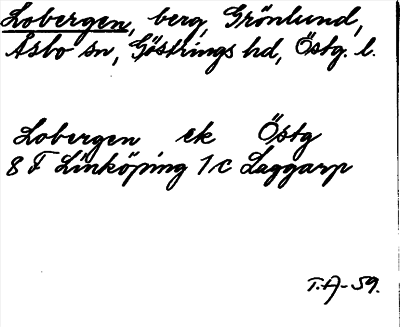 Lobergen, berg, Grönlund,
Åsbo sn, Göstrings hd, Östg. l.
Lobergen ek Östg
8 F Linköping 1 c Laggarp
T.A-59.